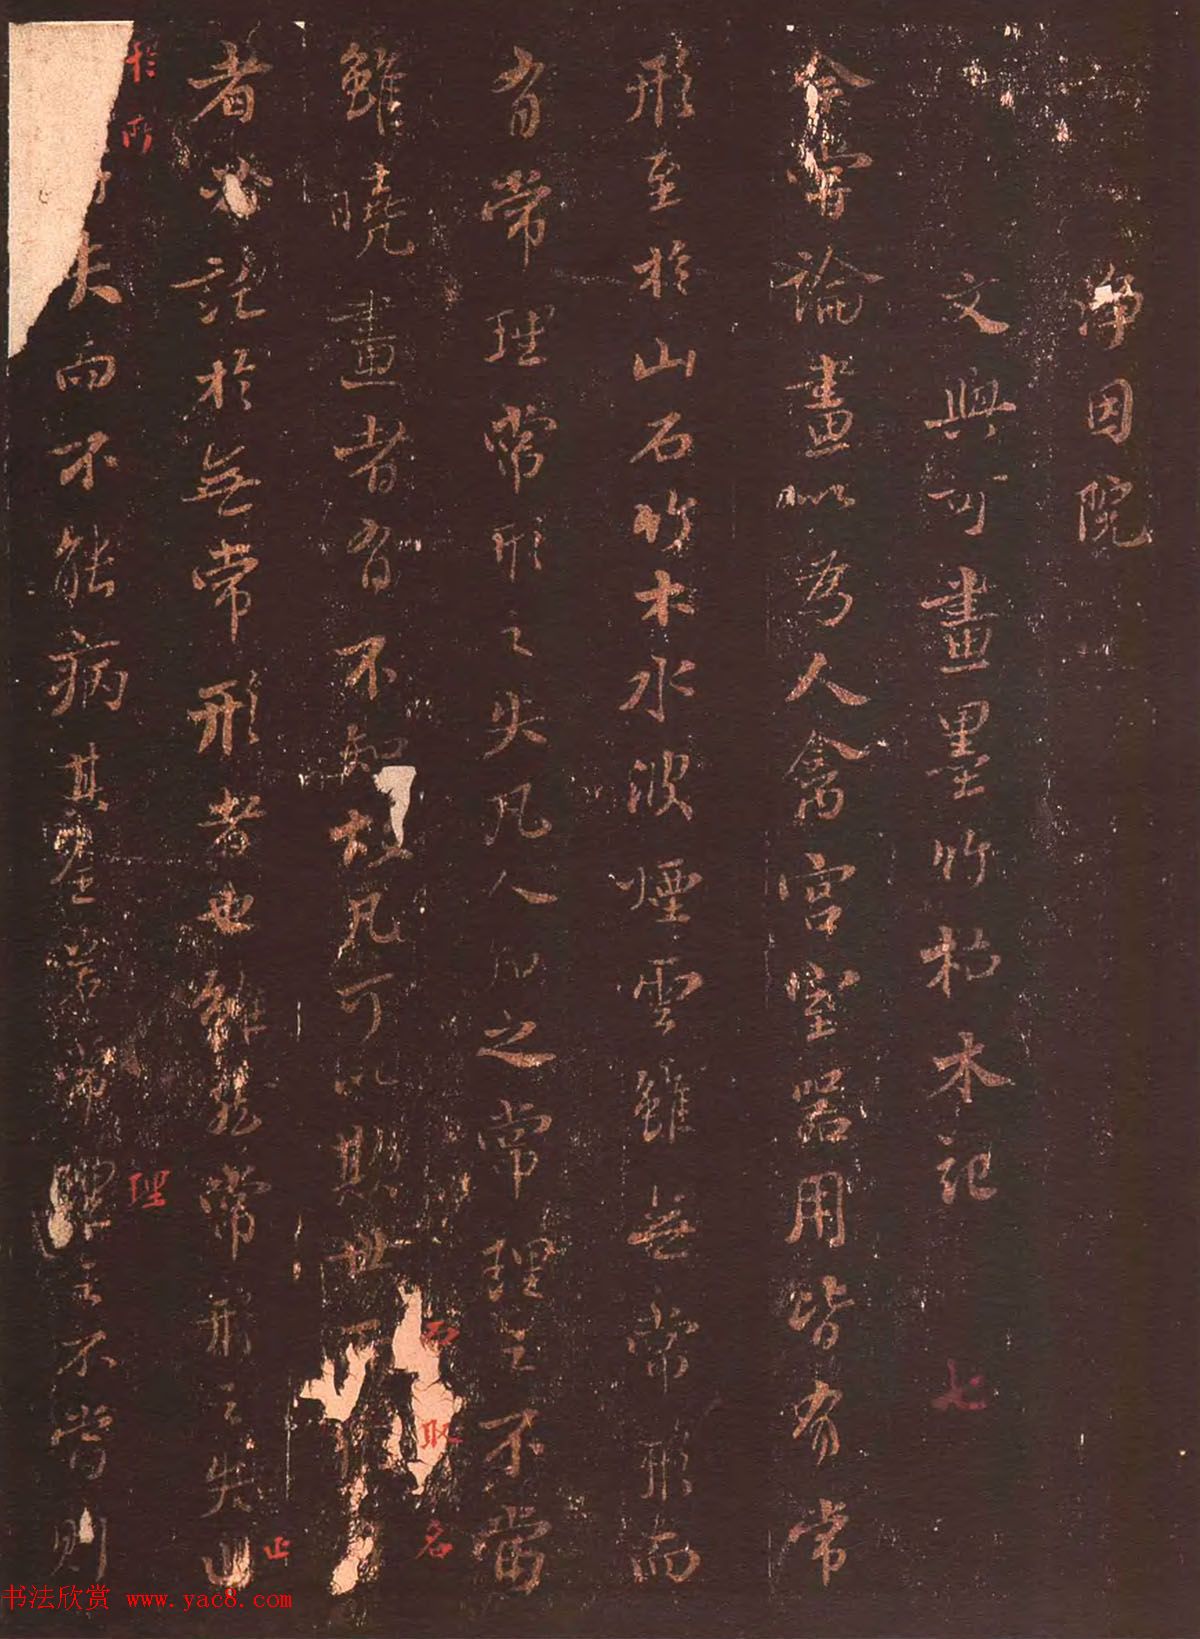 淨因院
文與可畫墨竹枯木記 七
余嘗論畫以為人禽宮室器用皆有常
形至於山石竹木水波煙雲雖無常形而
有常理常形之失凡人知之常理之不當
雖曉畫者有不知故凡可以欺世
而取名
者必託於無常形者也雖然常形之失止
止
於所
失而不能病其全若常理之不當則
理
书法欣赏 www.yac8.com